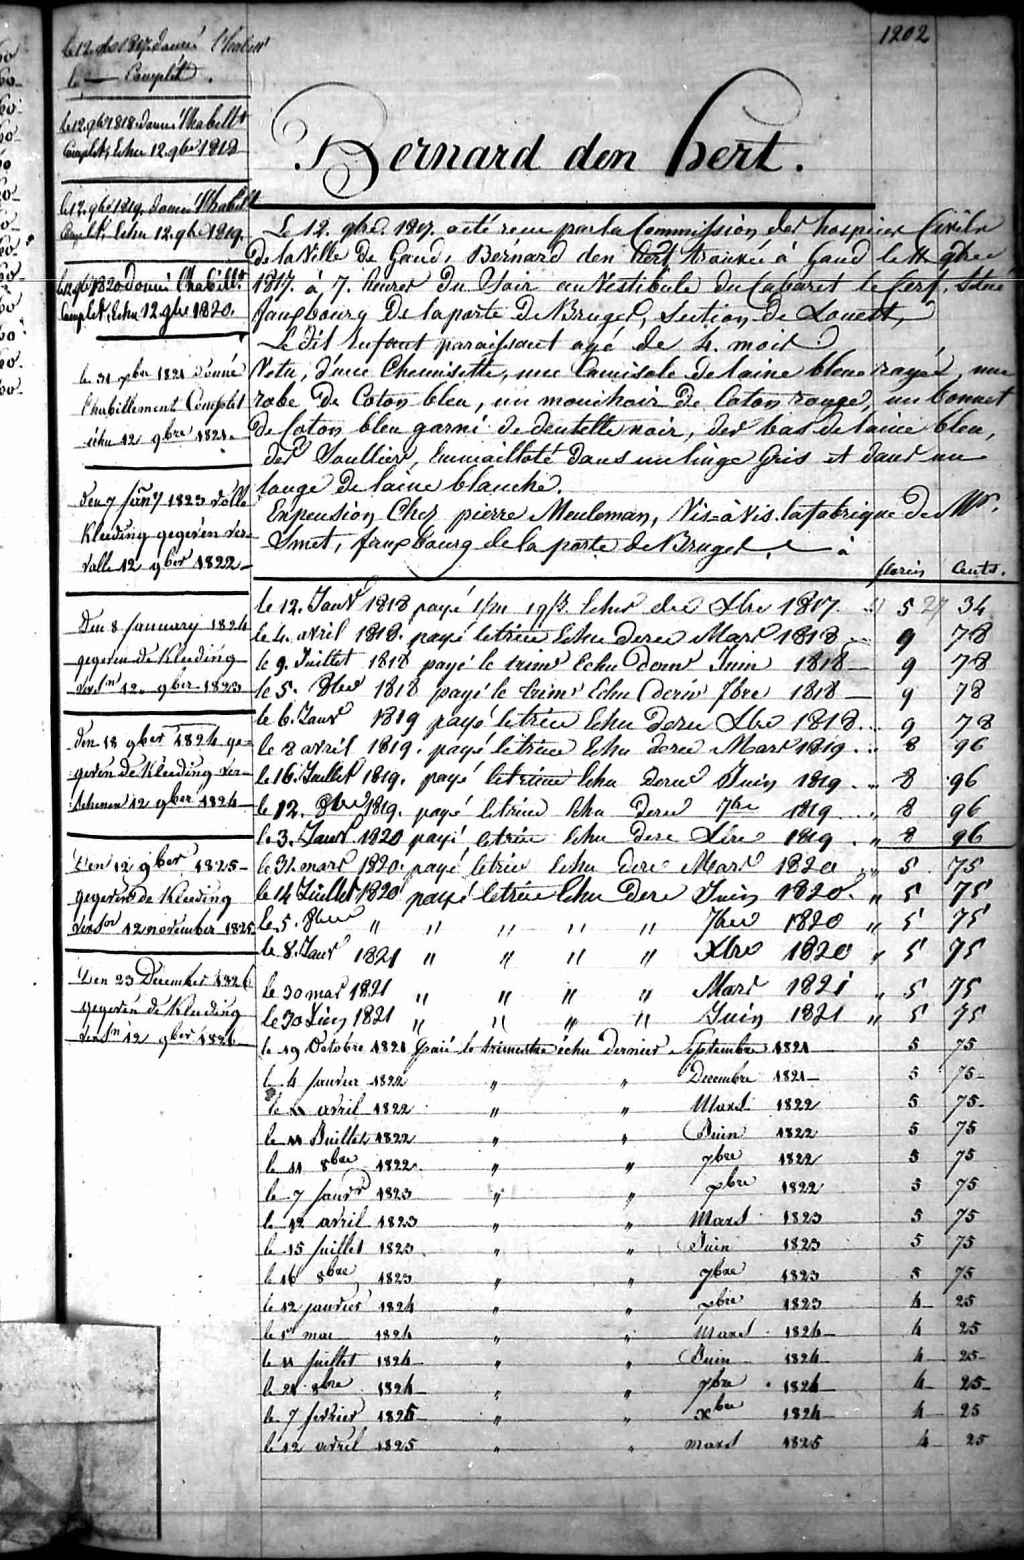 1202
Bernard den hert.
Le 12. 9bre. 1817. a été recu par la Commission des hospices Civils
de la Ville de Gand, Bernard den hert trouvée à Gand le 11 9bre
1817. à 7. heures Du Soir au Vestibule du Cabaret le Cerf, Situé
fauxbourg De la porte De Bruges, Section De Louest,
Le dit Enfant paraissant agé de 4. mois
Vetu, d'une Chemisette, une Camisole de laine bleue rayée, une
robe De Coton bleu, un mouchoir De Coton rouge, un bonnet
De Coton bleu garni de dentelle noir, des bas de laine bleu,
des Soulliers, Emmailloté dans un linge Gris et dans un
lange De laine blanche.
En pension Chez pierre Meuleman, Vis-à-Vis la fabrique De Mr.
Smet, fauxbourg de la porte De Bruges. à
florins Cents.
le 12. Janvr 1818 payé Echu Xbre 1817 5 27 34
le 4. avril 1818. payé le trim Echu dern Mars 1818 9 78
le 9. Juillet 1818 payé le trimr Echu dernr Juin 1818 9 78
le 5. 8bre 1818 payé le trimr Echu dernr 7bre 1818 9 78
le 6. Janvr 1819 payé le trim Echu dern Xbre 1818 9 78
le 8 avril 1819. payé le trim Echu dern Mars 1819 8 96
le 16. Juillet 1819. payé le trim Echu dern Juin 1819 8 96
le 12. 8bre 1819. payé le trim Echu dern 7bre 1819 8 96
le 3. Janvr 1820 payé le trim Echu dern Xbre 1819 8 96
le 31. mars 1820. payé le trim Echu dern Mars 1820 5 75
le 14 Juillet 1820 payé le trim Echu dern Juin 1820. 5 75
le 5. 8bre " " " " " 7bre 1820 " 5 75
le 8. Janvr 1821 " " " " Xbre 1820 " 5 75
le 30 mar 1821 " " " " Mars 1821 " 5 75
le 30 Juin 1821 " " " " Juin 1821 " 5 75
le 19 Octobre 1821 paié le trimestre échu dernier Septembre 1821 5 75
le 4 janvier 1822 " " Decembre 1821 5 75
le avril 1822 " " Mars 1822 5 75
le 11 Juillet 1822 " " Juin 1822 5 75
le 11 8bre 1822 " " 7bre 1822 5 75
le 7 janvr 1823 " " xbre 1822 5 75
le 12 avril 1823 " " Mars 1823 5 75
le 15 juillet 1823 " " Juin 1823 5 75
le 16 8bre 1823 " " 7bre 1823 5 75
le 12 janvier 1824 " " xbre 1823 4 25
le 1r mai 1824 " " Mars 1824 4 25
le 11 juillet 1824 " " Juin 1824 4 25
le 21 8bre 1824 " " 7bre 1824 4 25
le 7 fevrier 1825 " " Xbre 1824 4 25
le 12 avril 1825 " " mars 1825 4 25
le 12 1817. donné l'habill
le — Complet.
le 12. 9bre 1818. donné l'habillt
Complet, Echu 12. 9bre 1818
le 12. 9bre 1819. donné l'habillt
Complt. Echu 12. 9bre 1819.
1820 donné l'habillt
Complet, Echu 12. 9bre 1820.
le 31 xbre 1821 donné
l'habillement Complet
échu 12 9bre 1821.
den 7 januy 1823 volle
Kleeding gegeven ver-
valle 12 9ber 1822
Den 8 january 1824
gegeven de Kleeding
12. 9ber 1823
Den 18 9ber 1824 ge-
geven de Kleeding ver-
schenen 12 9ber 1824
Den 12 9ber 1825
gegeven de Kleeding
12 november 1825
Den 23 December 1826
gegeven de Kleeding
12 9ber 1826